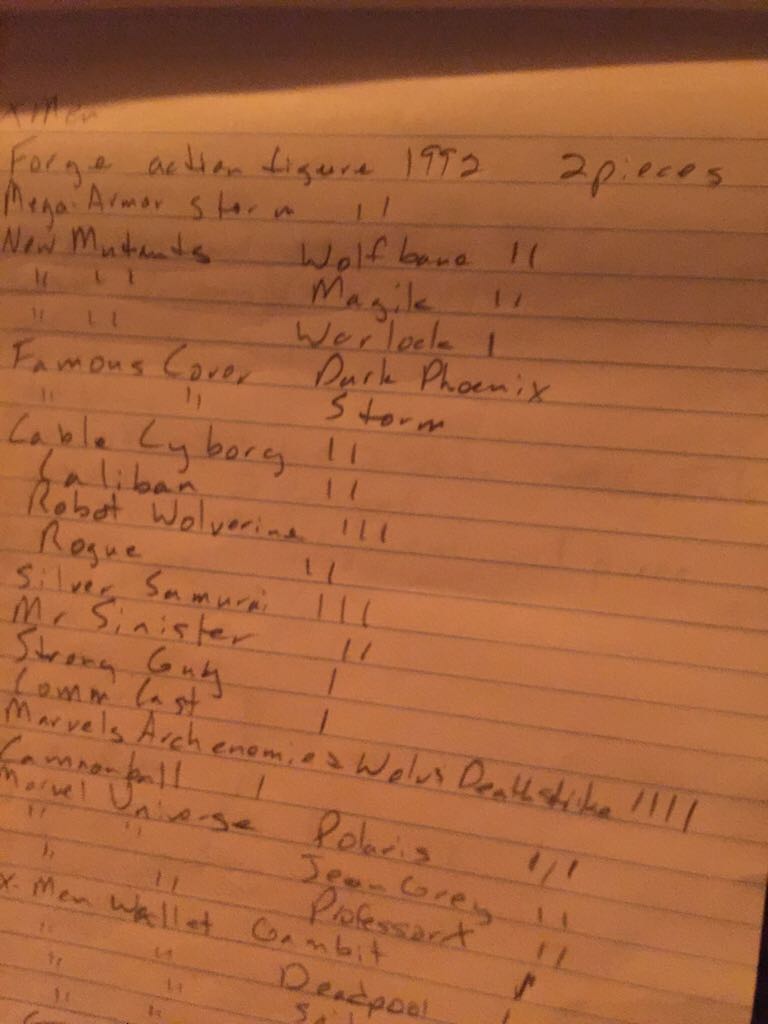 X-Men
Forge action figure 1992 2 pieces
Mega-Armor Storm 11
New Mutants Wolfbane 11
" " Magik 11
" " Warlock 1
Famous Cover Dark Phoenix
" " Storm
Cable Cyborg 11
Caliban 11
Robot Wolverine 111
Rogue 11
Silver Samurai 111
Mr Sinister 11
Strong Guy 1
Comm Cast 1
Marvels Archenemies Wolvs Deathstrike 1111
Cannonball 1
Marvel Universe Polaris 111
" " Jean Grey 11
" " Professor X 11
X-Men Wallet Gambit 1
" " Deadpool 1
" "
" "